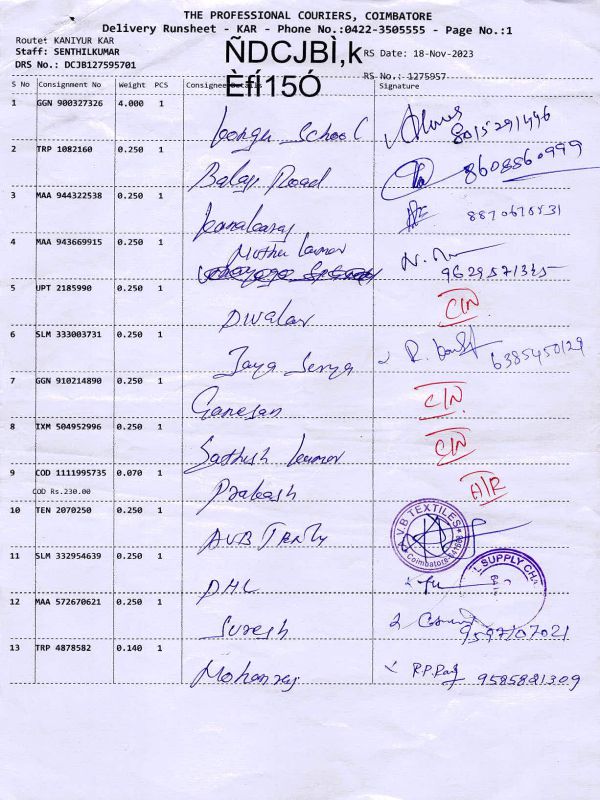 THE PROFESSIONAL COURIERS, COIMBATORE
Delivery Runsheet - KAR - Phone No.:0422-3505555 - Page No.:1
Route: KANIYUR KAR
Staff: SENTHILKUMAR ÑDCJBÌ,k RS Date: 18-Nov-2023
DRS No.: DCJB127595701 Èfí15Ó RS No.: 1275957
S No Consignment No Weight PCS Consignee Details Signature
1 GGN 900327326 4.000 1 School 8015291496
2 TRP 1082160 0.250 1 Road 8608560999
3 MAA 944322538 0.250 1
4 MAA 943669915 0.250 1 9629571345
5 UPT 2185990 0.250 1 CIN
6 SLM 333003731 0.250 1 Jaya Surya 6385450129
7 GGN 910214890 0.250 1 Ganesan CIN
8 IXM 504952996 0.250 1 Sathish kumar CIN
9 COD 1111995735 0.070 1 Prakash A/R
COD Rs.230.00
10 TEN 2070250 0.250 1 AVB V.B TEXTILES Coimbatore
11 SLM 332954639 0.250 1 DHL L SUPPLY CHA
12 MAA 572670621 0.250 1 Suresh 9597107021
13 TRP 4878582 0.140 1 Mohanraj 9585881309